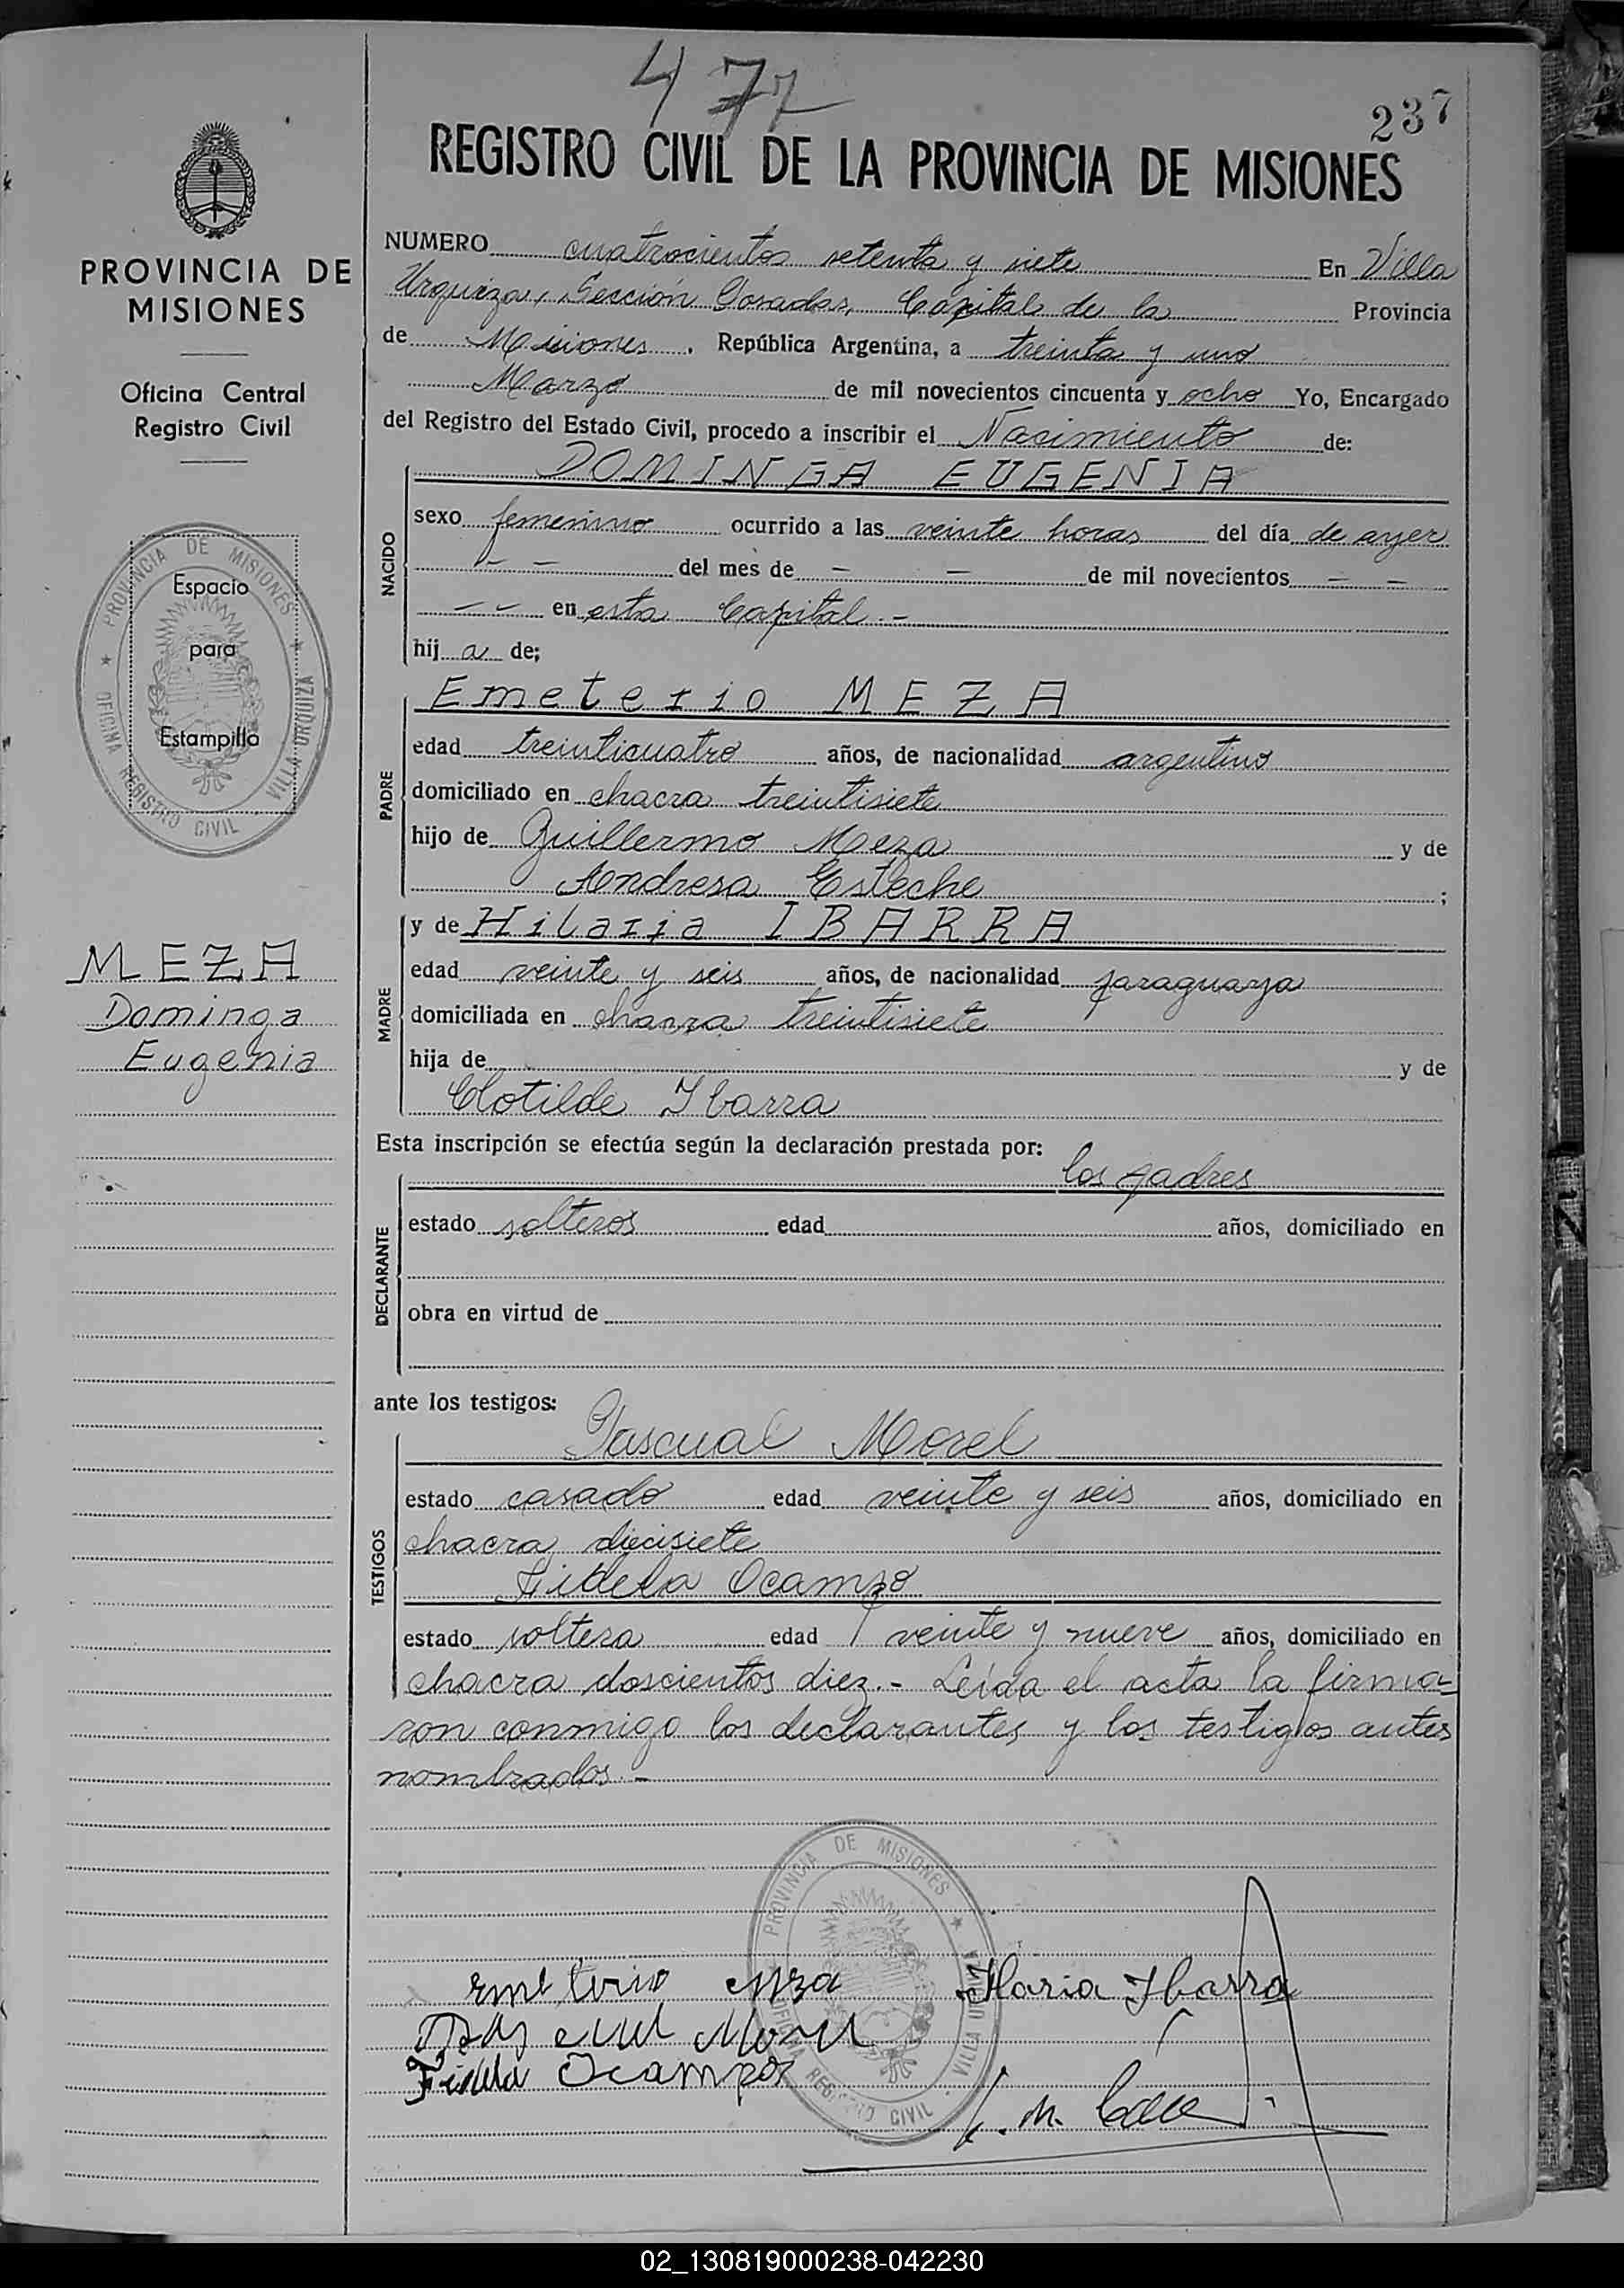 477
237
REGISTRO CIVIL DE LA PROVINCIA DE MISIONES
PROVINCIA DE
MISIONES
Oficina Central
Registro Civil
PROVINCIA DE MISIONES ★ VILLA URQUIZA
OFICINA REGISTRO CIVIL ★
Espacio
para
Estampilla
MEZA
Dominga
Eugenia
NUMERO cuatrocientos setenta y siete En Villa
Urquiza, Sección Posadas, Capital de la Provincia
de Misiones, República Argentina, a treinta y uno
Marzo de mil novecientos cincuenta y ocho Yo, Encargado
del Registro del Estado Civil, procedo a inscribir el Nacimiento de:
NACIDO
DOMINGA EUGENIA
sexo femenino ocurrido a las veinte horas del día de ayer
- - del mes de - - de mil novecientos - -
- - en esta Capital.-
hij a de;
PADRE
Emeterio MEZA
edad treinticuatro años, de nacionalidad argentino
domiciliado en chacra treintisiete
hijo de Guillermo Meza y de
Andresa Esteche ;
MADRE
y de Hilaria IBARRA
edad veinte y seis años, de nacionalidad paraguaya
domiciliada en chacra treintisiete
hija de y de
Clotilde Ibarra
Esta inscripción se efectúa según la declaración prestada por:
los padres
DECLARANTE
estado solteros edad años, domiciliado en
obra en virtud de
ante los testigos:
TESTIGOS
Pascual Morel
estado casado edad veinte y seis años, domiciliado en
chacra diecisiete
Fidela Ocampo
estado soltera edad veinte y nueve años, domiciliado en
chacra doscientos diez.- Leída el acta la firma-
ron conmigo los declarantes y los testigos antes
nombrados.-
PROVINCIA DE MISIONES ★ VILLA URQUIZA
OFICINA REGISTRO CIVIL
Emeterio Meza Ilaria Ibarra
Pascual Morel
Fidela Ocampo
02_130819000238-042230